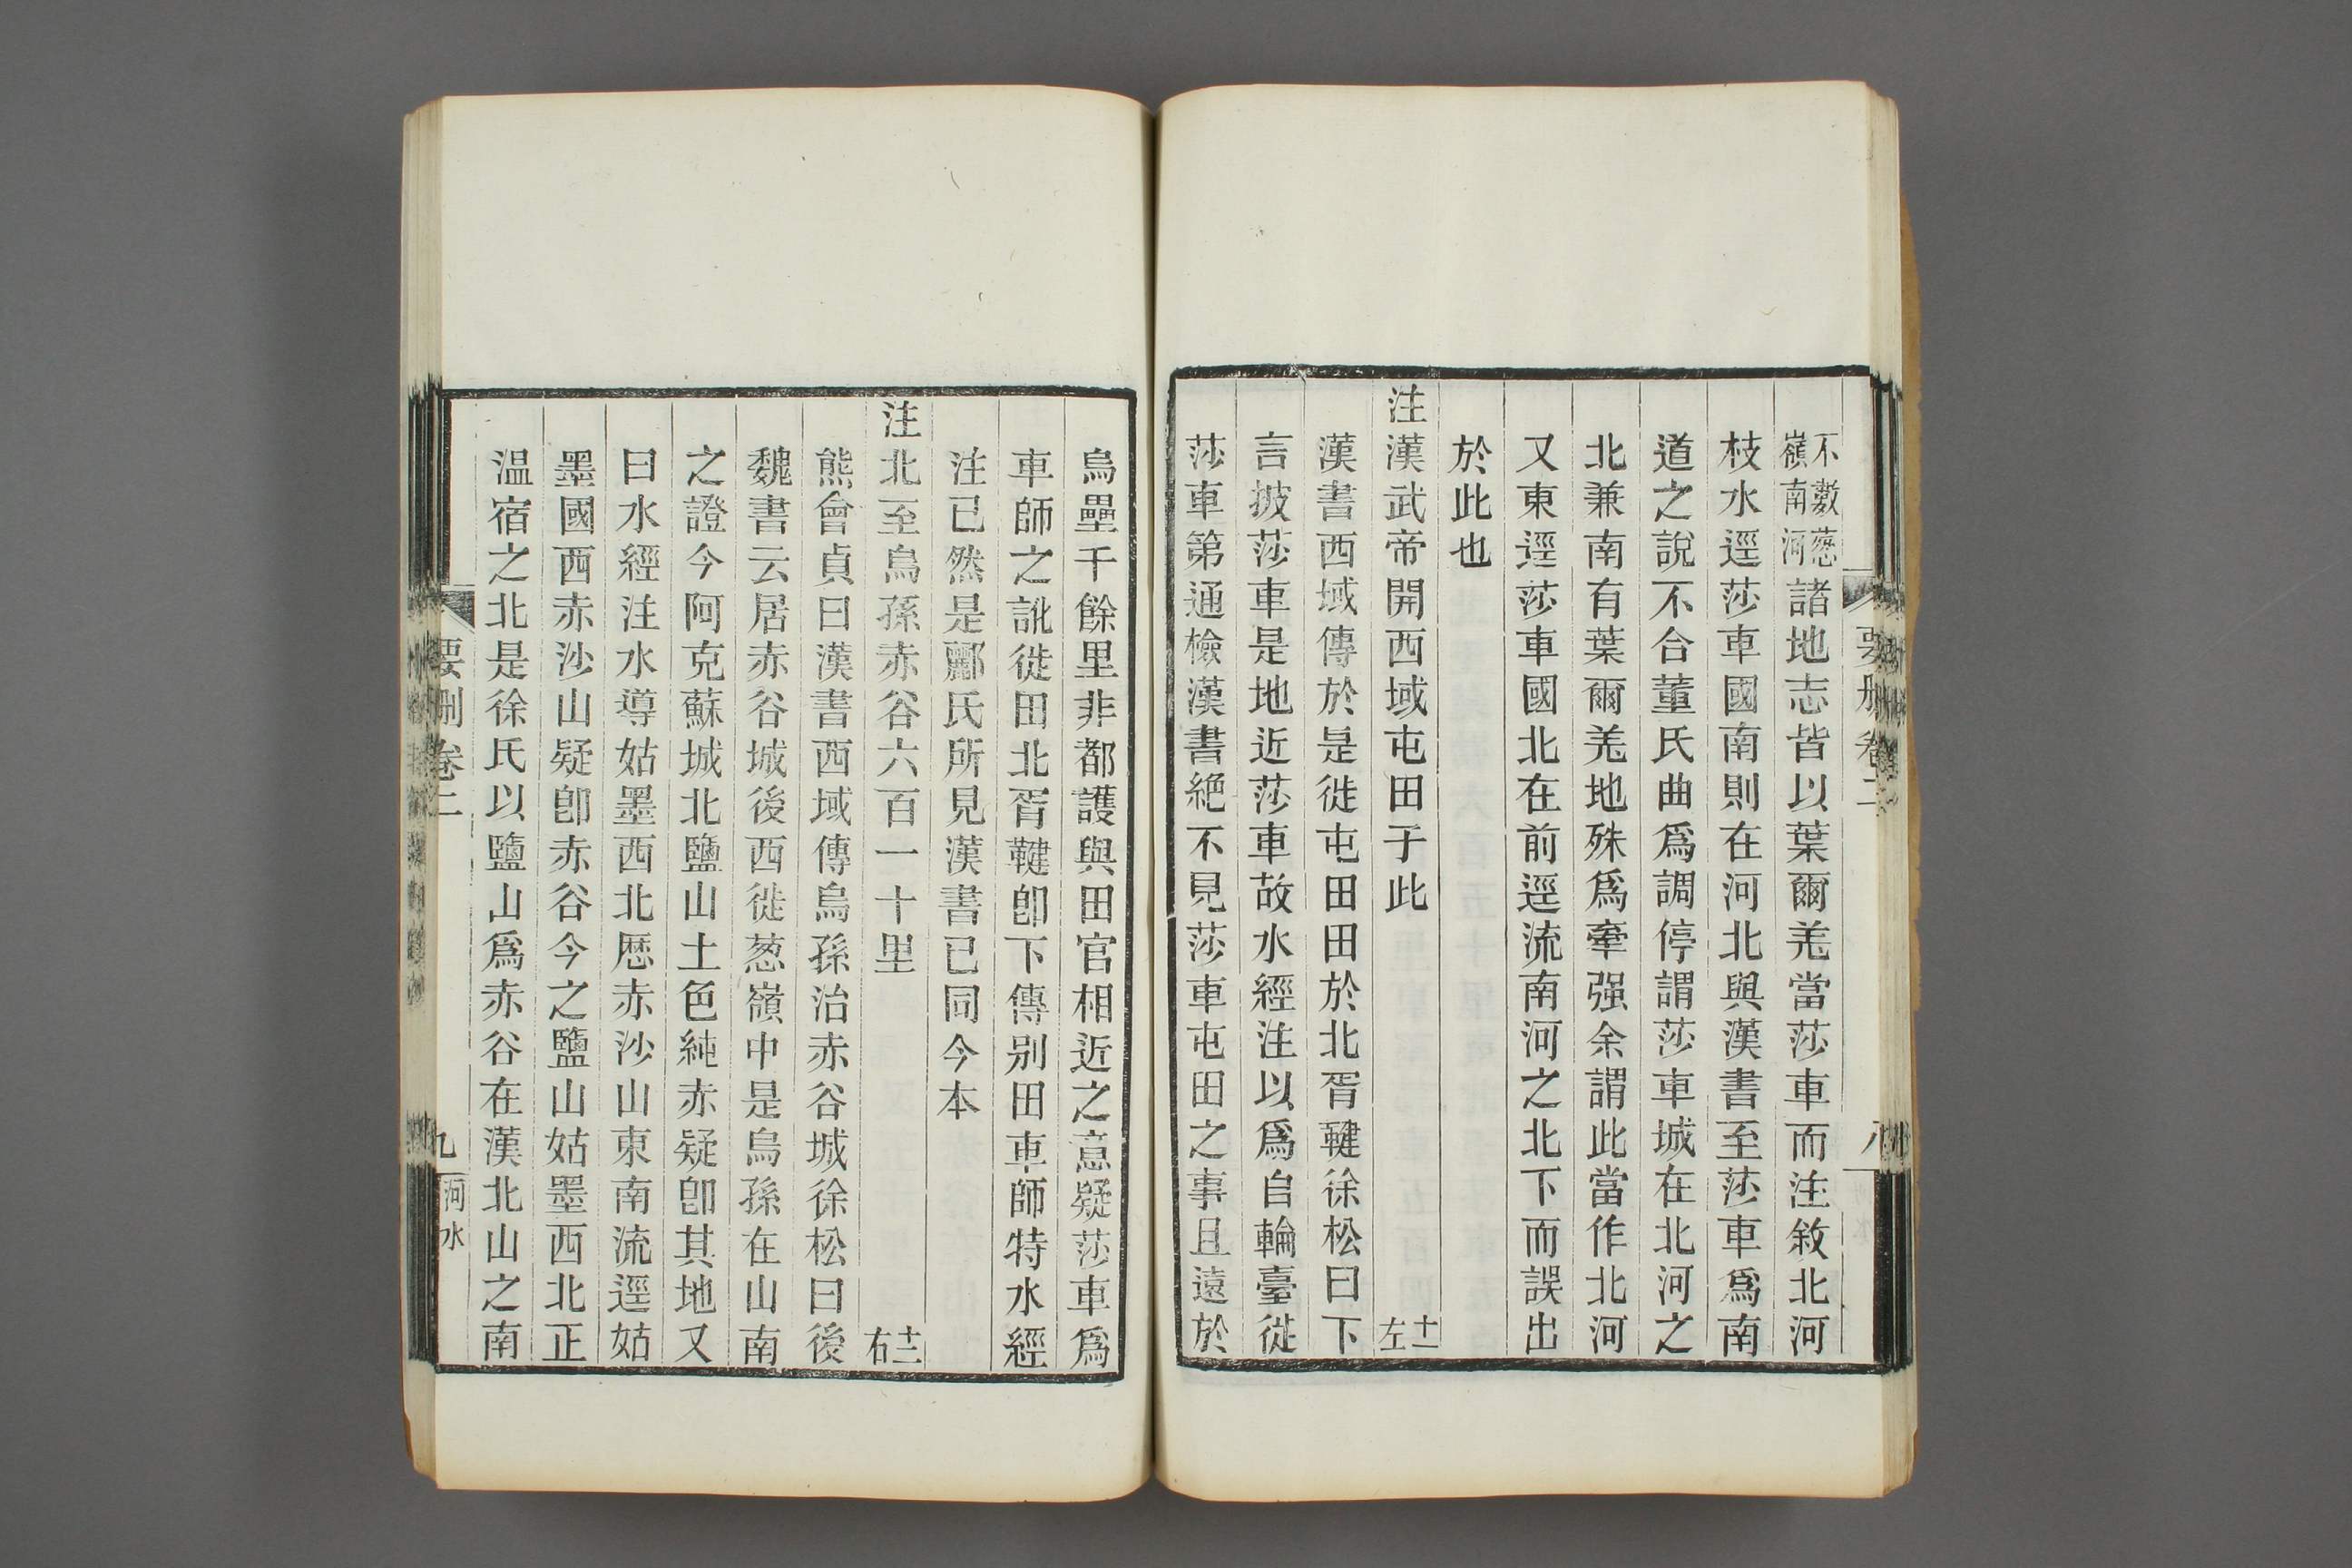 不數葱嶺南河諸地志皆以葉爾羌當莎車而注敘北河
枝水逕莎車國南則在河北與漢書至莎車爲南
道之說不合董氏曲爲調停謂莎車城在北河之
北兼南有葉爾羌地殊爲牽强余謂此當作北河
又東逕莎車國北在前逕流南河之北下而誤出
於此也
注漢武帝開西域屯田于此 十一左
漢書西域傳於是徙屯田田於北胥鞬徐松曰下
言披莎車是地近莎車故水經注以爲自輪臺徙
莎車第通檢漢書絕不見莎車屯田之事且遠於
烏壘千餘里非都護與田官相近之意疑莎車爲
車師之訛徙田北胥鞬卽下傳別田車師特水經
注已然是酈氏所見漢書已同今本
注北至烏孫赤谷六百一十里 十二右
熊會貞曰漢書西域傳烏孫治赤谷城徐松曰後
魏書云居赤谷城後西徙葱嶺中是烏孫在山南
之證今阿克蘇城北鹽山土色純赤疑卽其地又
曰水經注水導姑墨西北歷赤沙山東南流逕姑
墨國西赤沙山疑卽赤谷今之鹽山姑墨西北正
温宿之北是徐氏以鹽山爲赤谷在漢北山之南
要刪卷二 九 河水